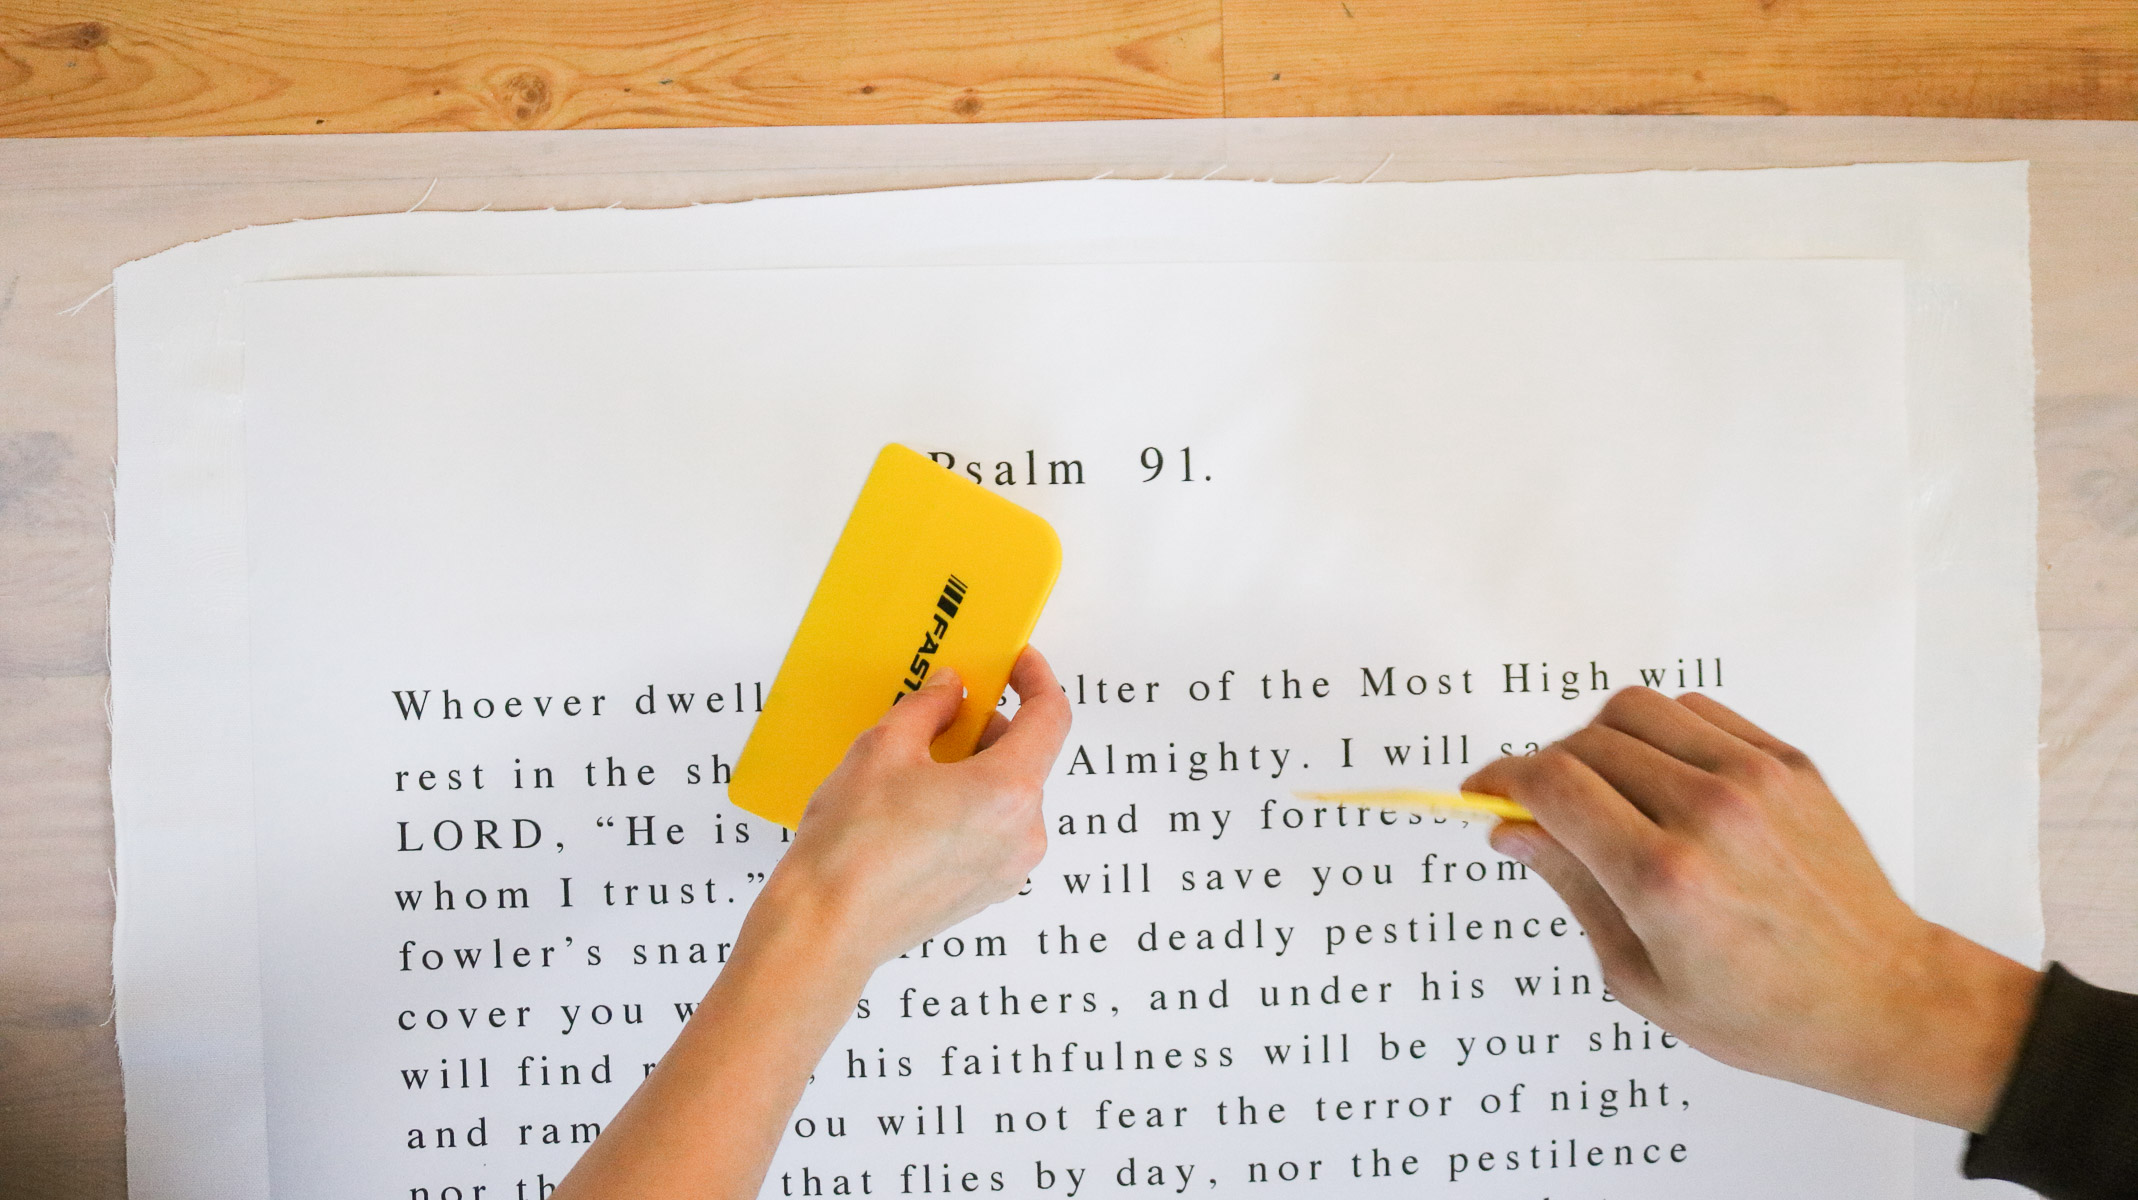 Psalm 91.
Whoever dwell lter of the Most High will
rest in the sh Almighty. I will sa
LORD, “He is and my fortress,
whom I trust.” will save you from
fowler’s snar from the deadly pestilence.
cover you w s feathers, and under his wing
will find , his faithfulness will be your shie
and ram ou will not fear the terror of night,
nor th that flies by day, nor the pestilence
FAST